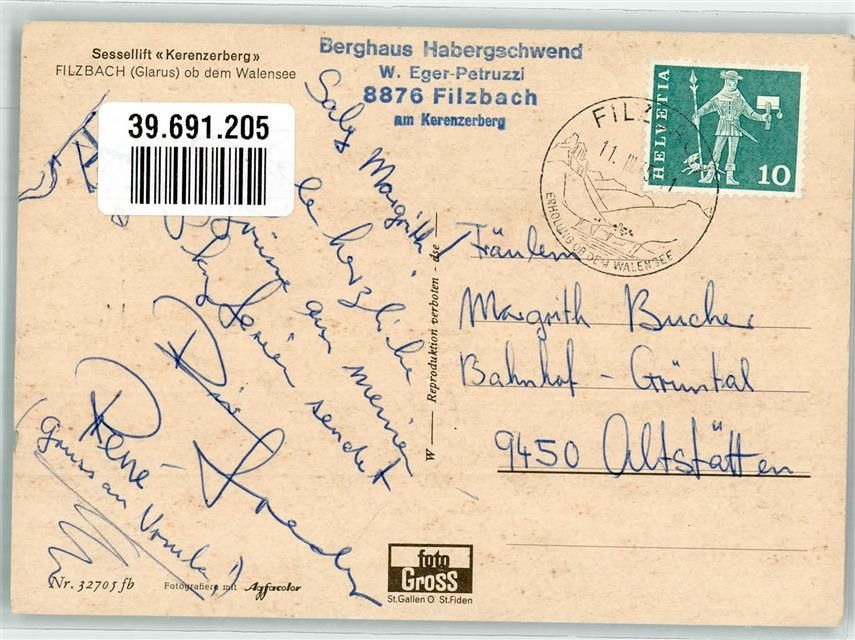 Sessellift «Kerenzerberg»
FILZBACH (Glarus) ob dem Walensee
Berghaus Habergschwend
W. Eger-Petruzzi
8876 Filzbach
am Kerenzerberg
39.691.205
HELVETIA
10
FILZ
11. III.
ERHOLUNG OB DEM WALENSEE
Saly Margrith!
herzliche
Grüsse aus meinen
Skiferien sendet
René
(Gruss an Ursula!)
Fräulein
Margrith Bucher
Bahnhof - Grüntal
9450 Altstätten
W — Reproduktion verboten - dse —
Nr. 32705 fb
Fotografiere mit Agfacolor
foto
GROSS
St.Gallen O St.Fiden